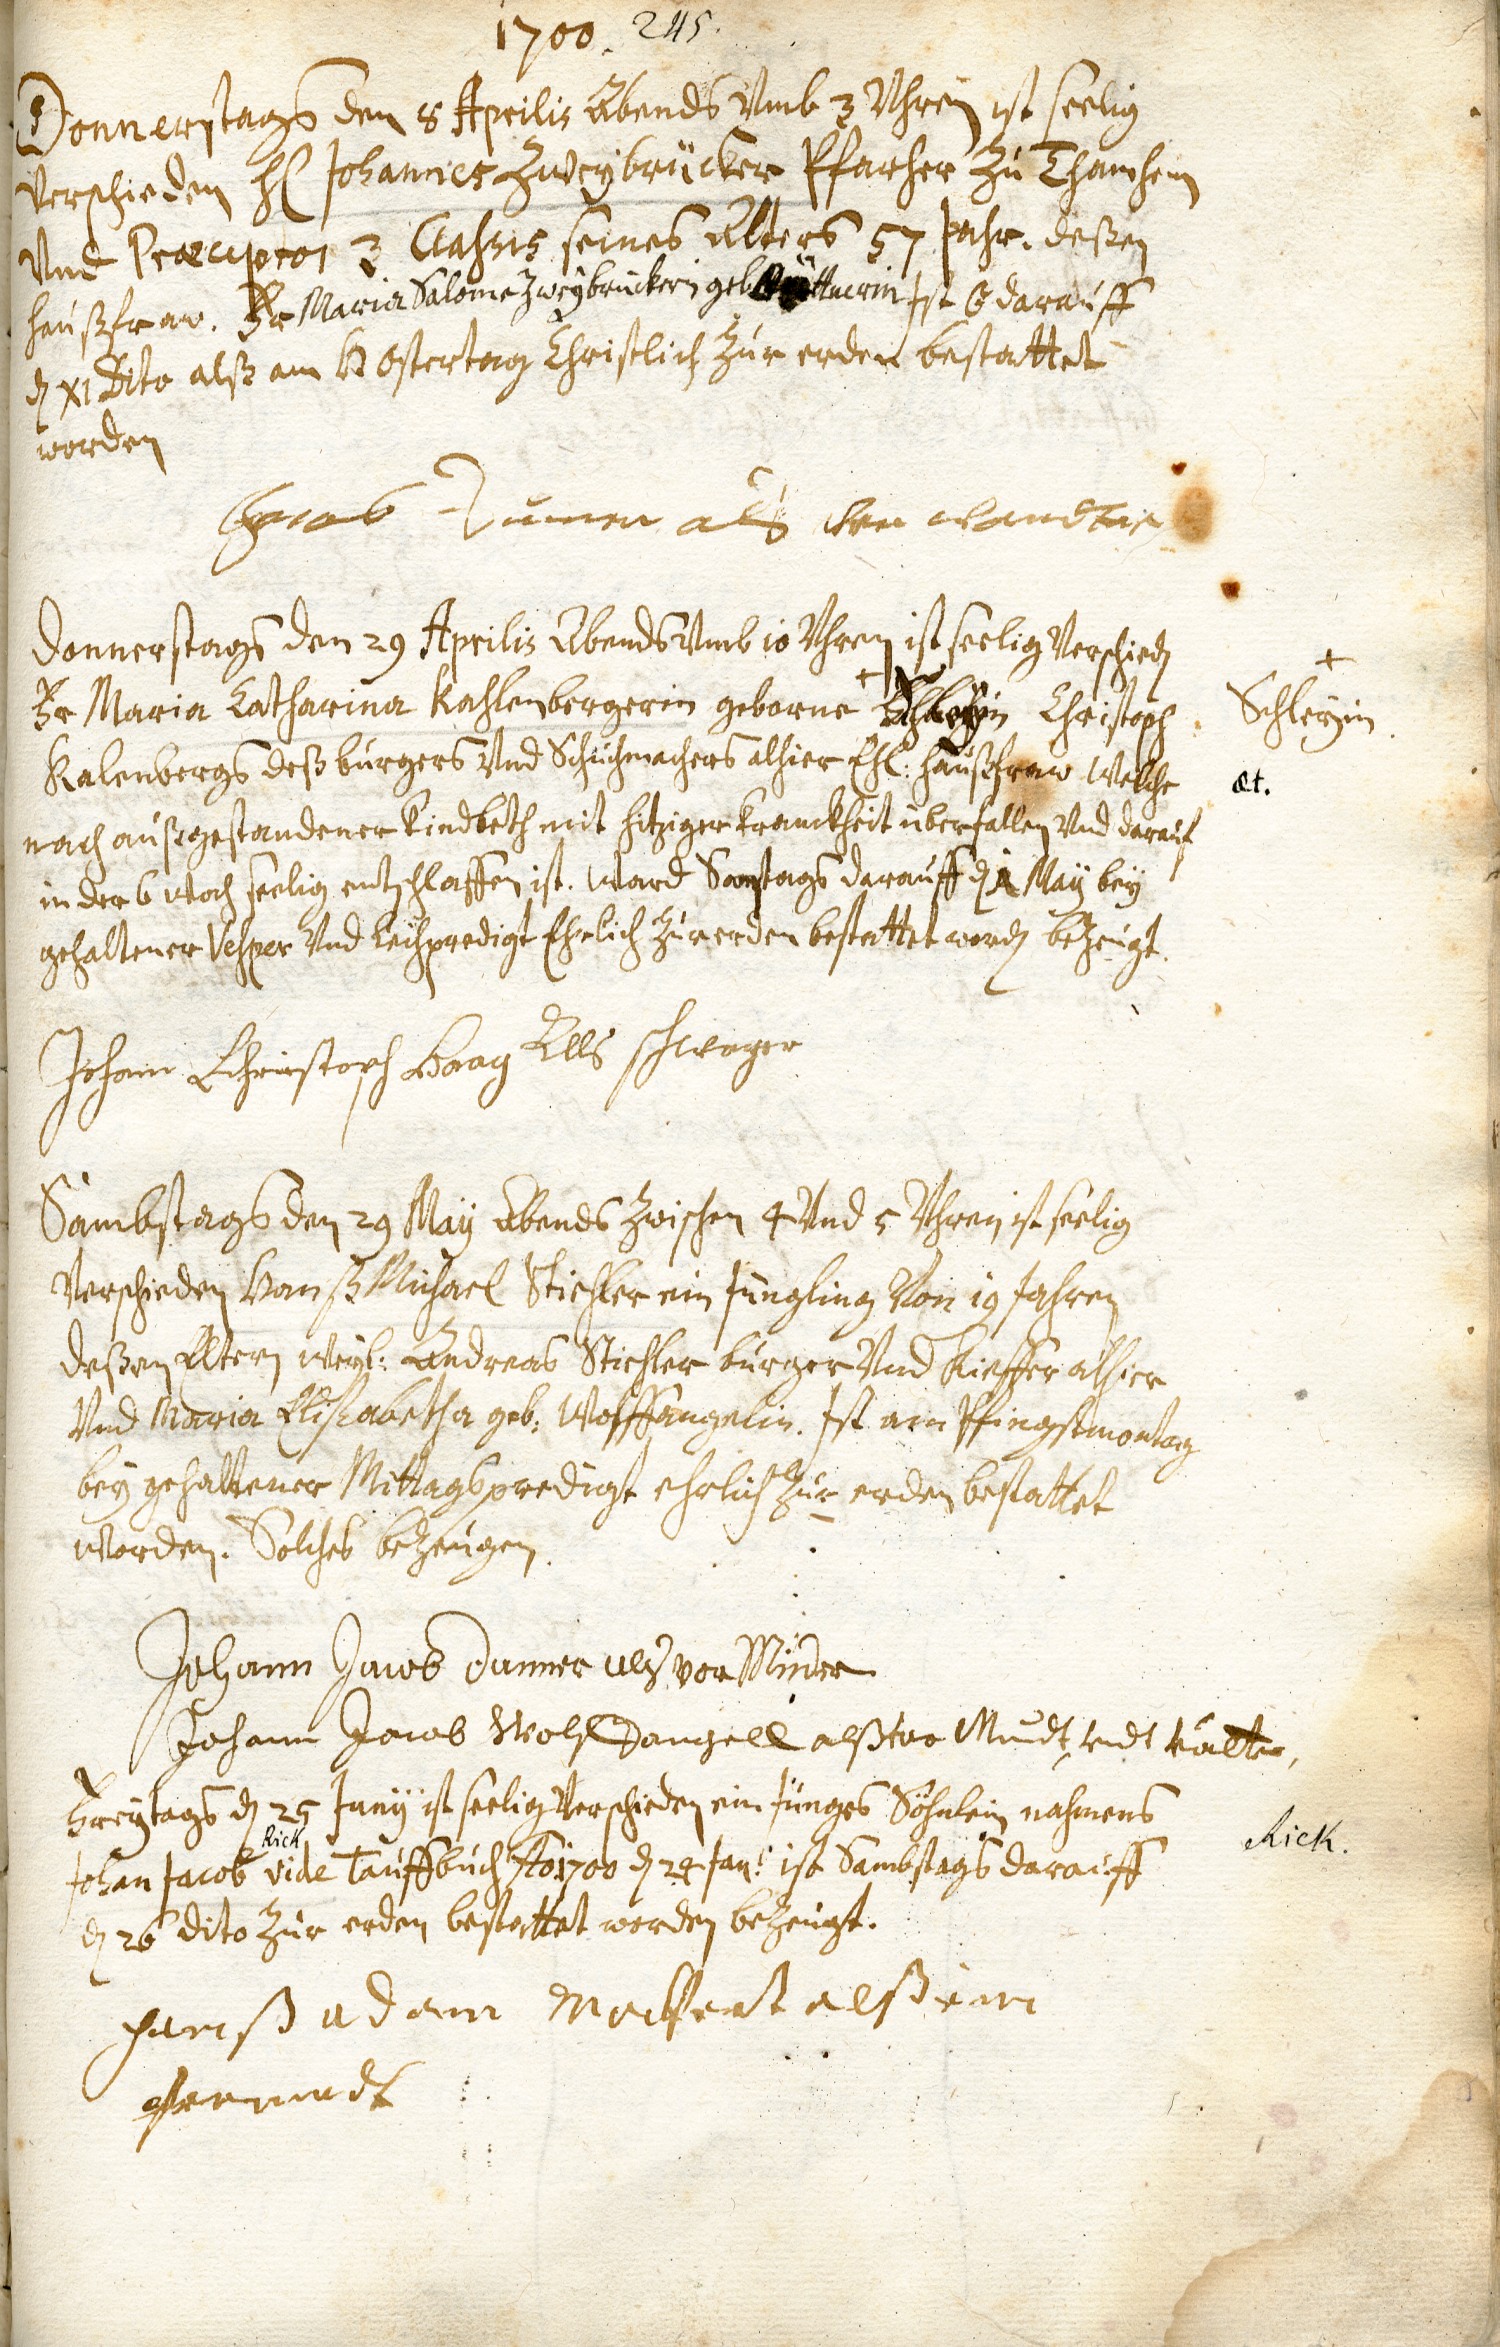 1700. 245.
Donnerstags den 8 Aprilis Abends Vmb 3 Vhren ist seelig
Verschieden H Johannes Zweybrücker Pfarher zu
Vnd Praeceptor 3 Classis seines Alters 57 Jahr. deßen
haußfraw. Fr Maria Salome Zweybruckerin geb. Ist ☉ darauff
d XI Dito alß am H Ostertag Christlich zur erden bestattet
worden
als
Donnerstags den 29 Aprilis Abends Vmb 10 Vhren ist seelig Verschied
Fr Maria Catharina Kahlenbergerin geborne + Christoph
+
Schleyin
Kalenbergs deß burgers Vnd Schuchmachers alhier Ehl: haußfraw Welche
æt.
nach außgestandener Kindbeth mit hitziger Kranckheit uberfallen Vnd darauf
in der 6 Woch seelig entschlaffen ist. Ward Samstags darauff d 1 May bey
gehaltener Vesper Vnd Leichpredigt Ehrlich zur erden bestattet word bezeugt.
Johann Christoph Haag Alls schwager
Sambstags den 29 May Abends zwischen 4 Vnd 5 Vhren ist seelig
Verschieden Hanß Michael Stichler ein Jungling Von 19 Jahren
deßen Eltern weyl: Andreas Stichler burger Vnd Kieffer alhier
Vnd Maria Elisabetha geb: Wolffangelin. Ist am Pfingstmontag
bey gehaltener Mittagspredigt ehrlich zur erden bestattet
worden. Solches bezeugen.
Johann Jacob Danner als vor Minder
Johann Jacob Wolff Dangell alß vor Mundt vndt
Freytags d 25 Juny ist seelig Verschieden ein Junges Söhnlein nahmens
Rick
Johan Jacob vide Tauffbuch Ao 1700 d 24 Jan. ist Sambstags darauff
Rick.
d 26 dito zur erden bestattet worden bezeugt.
hanß adam alß ein